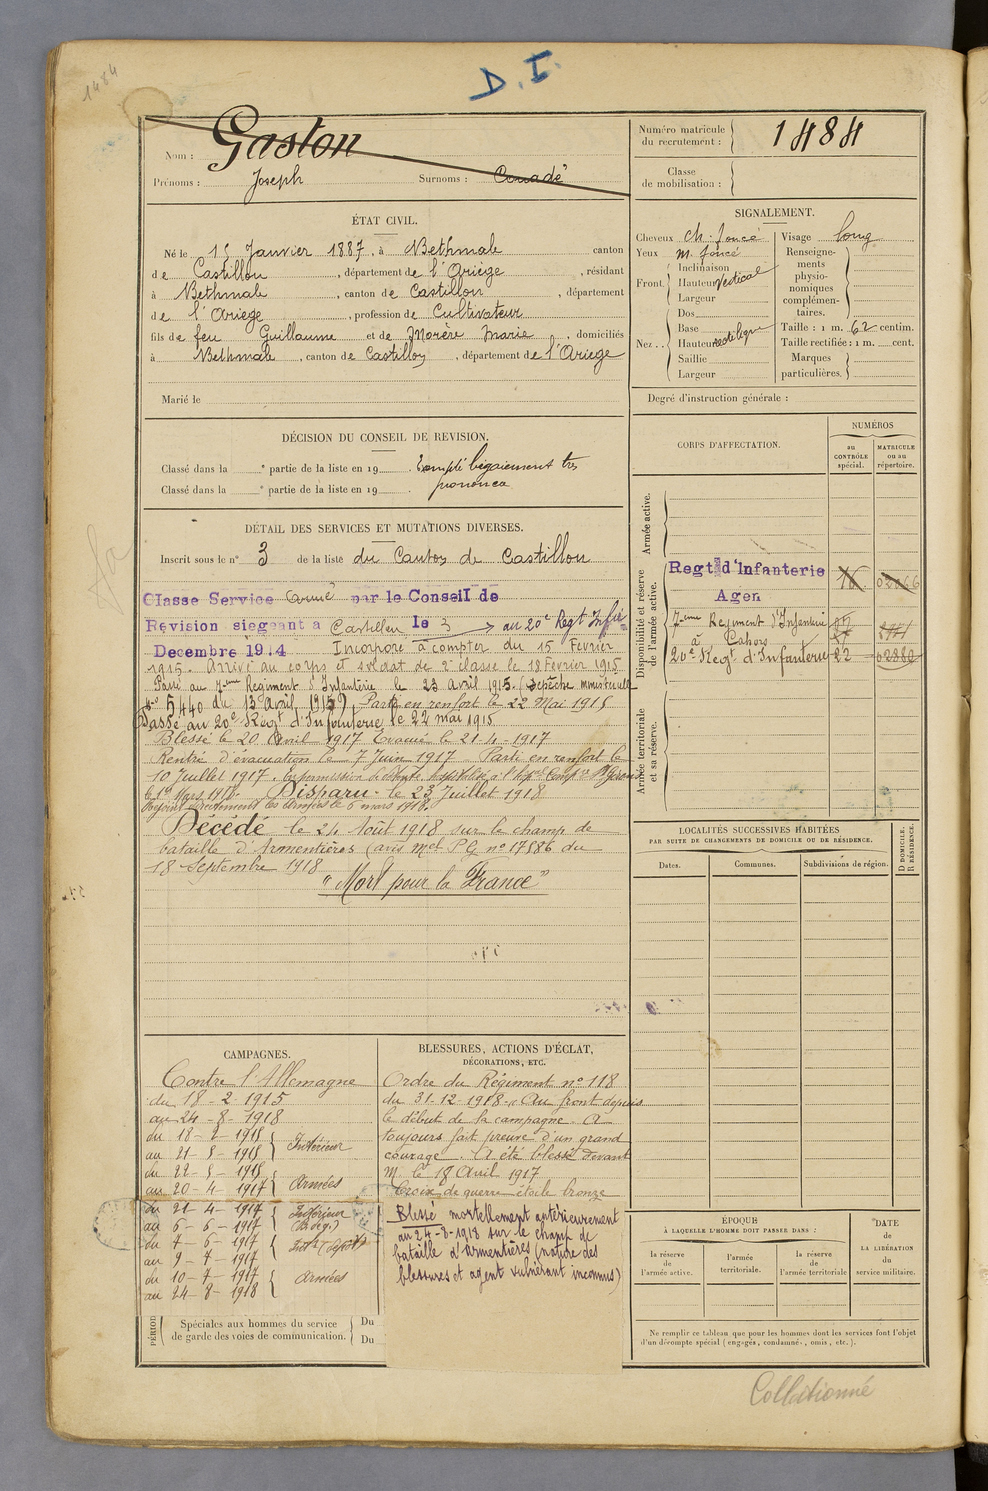 1484
D. I.
Nom : Gaston
Prénoms : Joseph Surnoms : Couadé
Numéro matricule du recrutement : 1484
Classe de mobilisation :
ÉTAT CIVIL.
Né le 15 Janvier 1887, à Bethmale canton
de Castillon, département de l'Ariège, résidant
à Bethmale, canton de Castillon, département
de l'Ariège, profession de Cultivateur
fils de feu Guillaume et de Morère Marie, domiciliés
à Bethmale, canton de Castillon, département de l'Ariège
Marié le
SIGNALEMENT.
Cheveux ch. foncé
Yeux m. foncé
Front Inclinaison
Hauteur Vertical
Largeur
Nez Dos
Base
Hauteur rectiligne
Saillie
Largeur
Visage long
Renseignements physionomiques complémentaires.
Taille : 1 m. 62 centim.
Taille rectifiée : 1 m. cent.
Marques particulières.
Degré d'instruction générale :
DÉCISION DU CONSEIL DE REVISION.
Classé dans la e partie de la liste en 19 . Exempté bégaiement très
Classé dans la e partie de la liste en 19 . prononcé
DÉTAIL DES SERVICES ET MUTATIONS DIVERSES.
Inscrit sous le n° 3 de la liste du Canton de Castillon
Classé Service Armé par le Conseil de
Révision siégeant à Castillon le 3 au 20e Regt Infie
Décembre 1914 Incorporé à compter du 15 Février
1915. Arrivé au corps et soldat de 2e classe le 18 Février 1915
Passé au 7ème Régiment d'Infanterie le 23 Avril 1915. (Dépêche ministérielle
n° 5440 du 13 avril 1915) Parti en renfort le 22 Mai 1915
Passé au 20e Régt d'Infanterie le 22 mai 1915
Blessé le 20 Avril 1917 Evacué le 21-4-1917
Rentré d'évacuation le 7 Juin 1917 Parti en renfort le
10 Juillet 1917.
le 1er Mars 1918 Disparu le 23 Juillet 1918
Rejoint directement les armées le 6 mars 1918.
Décédé le 24 Août 1918 sur le champ de
bataille d'Armentières (avis Mel P G n° 17586 du
18 Septembre 1918
"Mort pour la France"
CORPS D'AFFECTATION.
NUMÉROS
au CONTRÔLE spécial.
MATRICULE ou au répertoire.
Armée active.
Disponibilité et réserve de l'armée active.
Regt d'Infanterie
Agen
7eme Régiment d'Infanterie
à Cahors
20e Regt d'Infanterie 22 02880
Armée territoriale et sa réserve.
LOCALITÉS SUCCESSIVES HABITÉES
PAR SUITE DE CHANGEMENTS DE DOMICILE OU DE RÉSIDENCE.
Dates. Communes. Subdivisions de région. D DOMICILE. R RÉSIDENCE.
CAMPAGNES.
Contre l'Allemagne
du 18-2-1915
au 24-8-1918
du 18-2-1915
au 21-5-1915 Intérieur
du 22-5-1915
au 20-4-1917 Armées
du 21-4-1917 Intérieur
au 6-6-1917
du 7-6-1917
au 9-7-1917
du 10-7-1917 Armées
au 24-8-1918
PÉRIOD
Spéciales aux hommes du service
de garde des voies de communication.
Du
Du
BLESSURES, ACTIONS D'ÉCLAT,
DÉCORATIONS, ETC.
Ordre du Régiment n° 118
du 31-12-1918 « Au front depuis
le début de la campagne. A
toujours fait preuve d'un grand
courage. A été blessé devant
M. le 18 Avril 1917
Croix de guerre étoile bronze
Blessé mortellement antérieurement
au 24-8-1918 sur le champ de
bataille d'Armentières (nature des
blessures et agent vulnérant inconnus)
ÉPOQUE
À LAQUELLE L'HOMME DOIT PASSER DANS :
la réserve de l'armée active.
l'armée territoriale.
la réserve de l'armée territoriale
DATE de LA LIBÉRATION du service militaire.
Ne remplir ce tableau que pour les hommes dont les services font l'objet
d'un décompte spécial (engagés, condamnés, omis, etc.).
Collationné